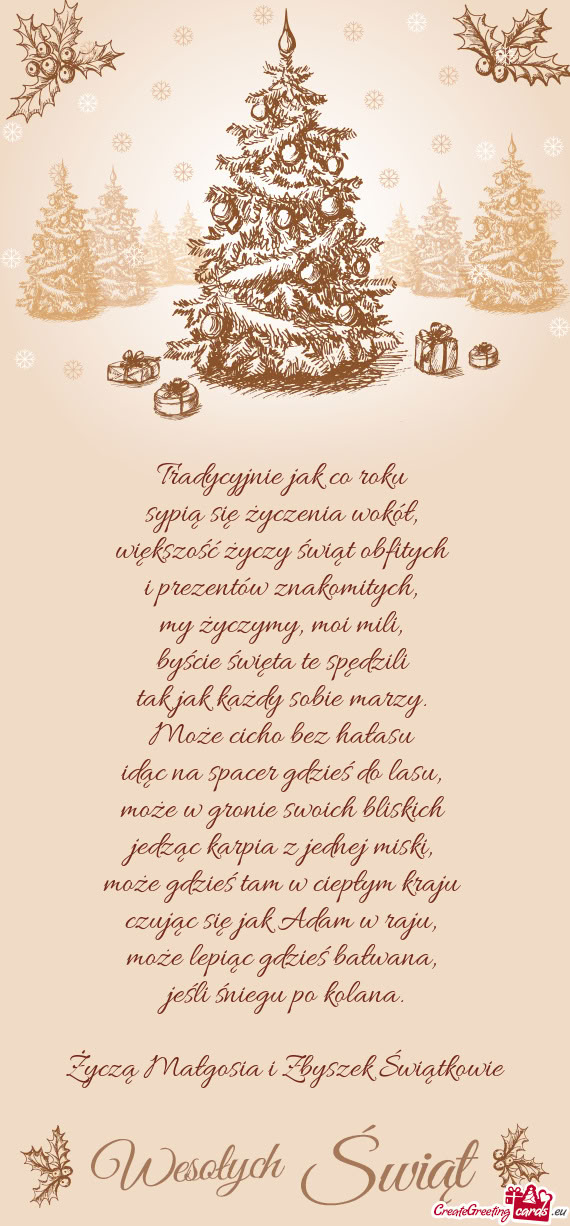 Tradycyjnie jak co roku
sypią się życzenia wokół,
większość życzy świąt obfitych
i prezentów znakomitych,
my życzymy, moi mili,
byście święta te spędzili
tak jak każdy sobie marzy.
Może cicho bez hałasu
idąc na spacer gdzieś do lasu,
może w gronie swoich bliskich
jedząc karpia z jednej miski,
może gdzieś tam w ciepłym kraju
czując się jak Adam w raju,
może lepiąc gdzieś bałwana,
jeśli śniegu po kolana.
Życzą Małgosia i Zbyszek Świątkowie
Wesołych Świąt
CreateGreetingcards.eu